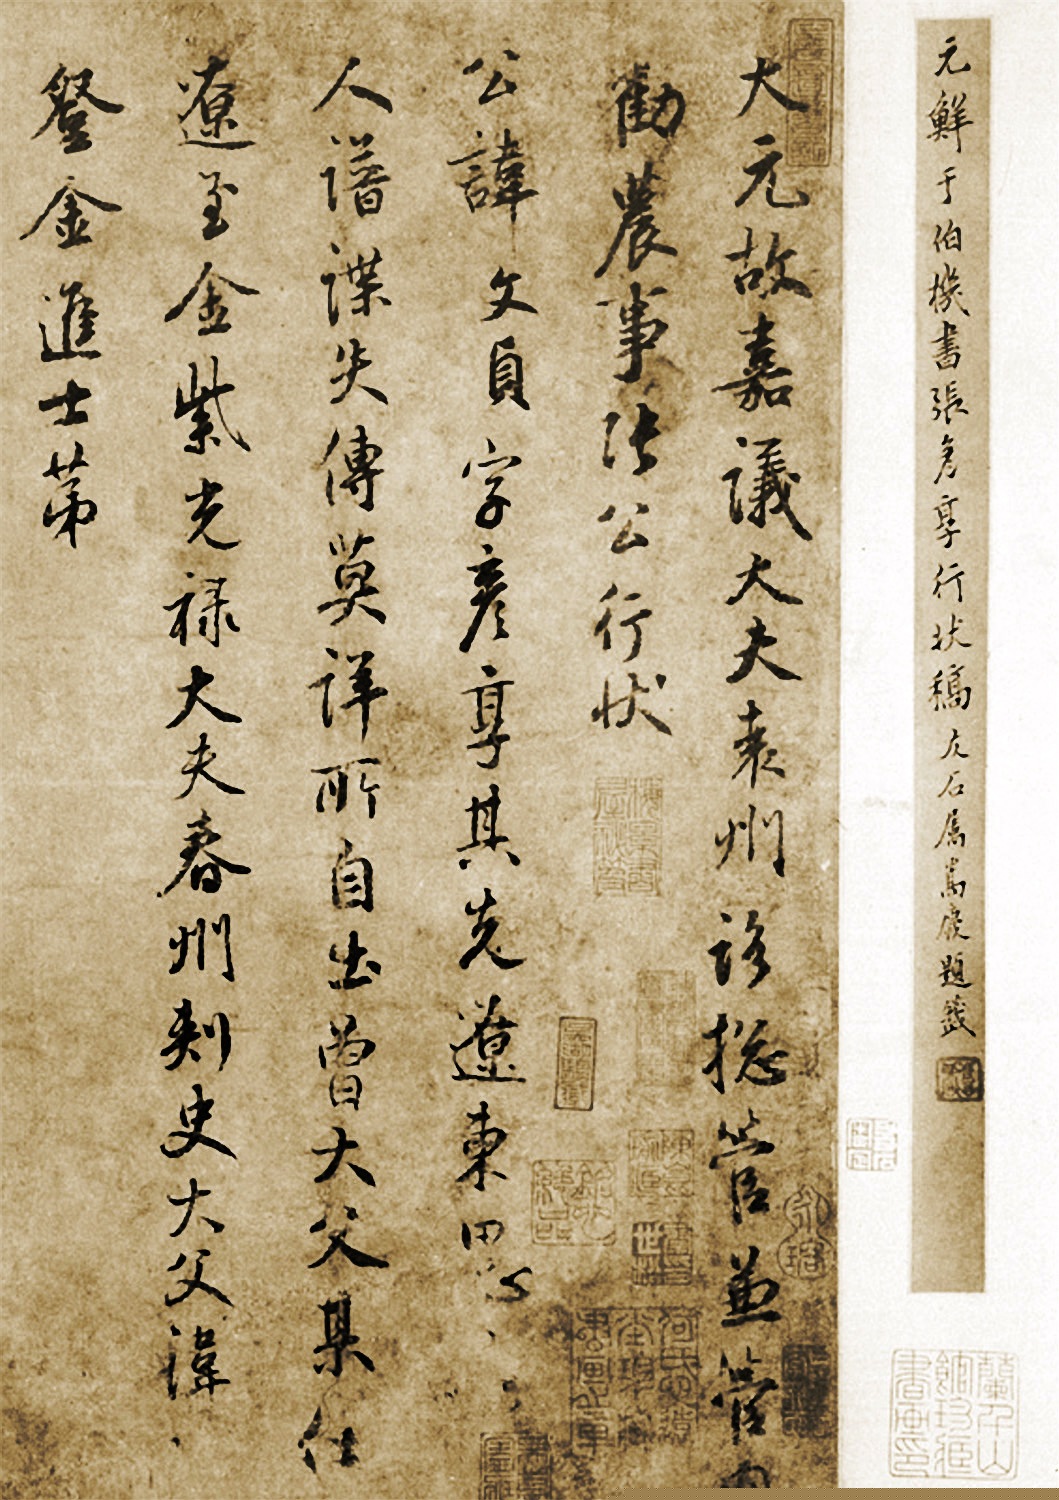 元鮮于伯機書張彥享行狀稿 庚題籤
大元故嘉議大夫袁州路揔管兼管內
勸農事張公行狀
公諱文貞字彥享其先遼東
人譜諜失傳莫詳所自出曾大父某仕
遼至金紫光祿大夫春州刾史大父諱
登金進士第